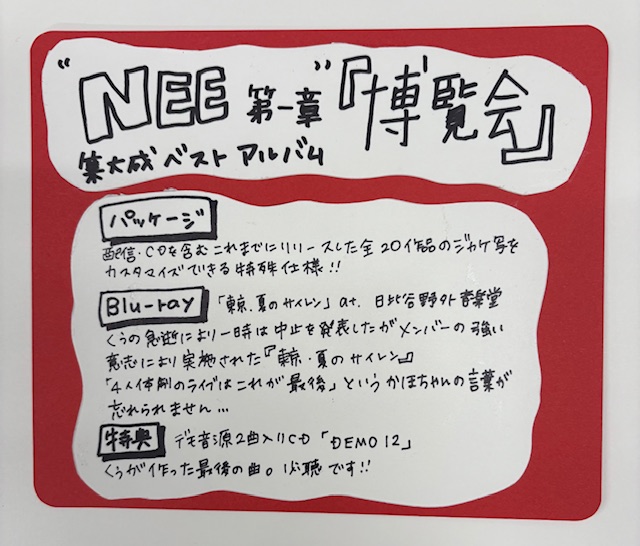 “NEE 第一章”『博覧会』
集大成 ベスト アルバム
パッケージ
配信・CDを含むこれまでにリリースした全20作品のジャケ写を
カスタマイズできる特殊仕様!!
Blu-ray 「東京.夏のサイレン」at. 日比谷野外音楽堂
くうの急逝により一時は中止を発表したがメンバーの強い
意志により実施された『東京・夏のサイレン』
「4人体制のライブはこれが最後」というかほちゃんの言葉が
忘れられません...
特典 デモ音源2曲入りCD「DEMO 12」
くうが作った最後の曲。必聴です!!